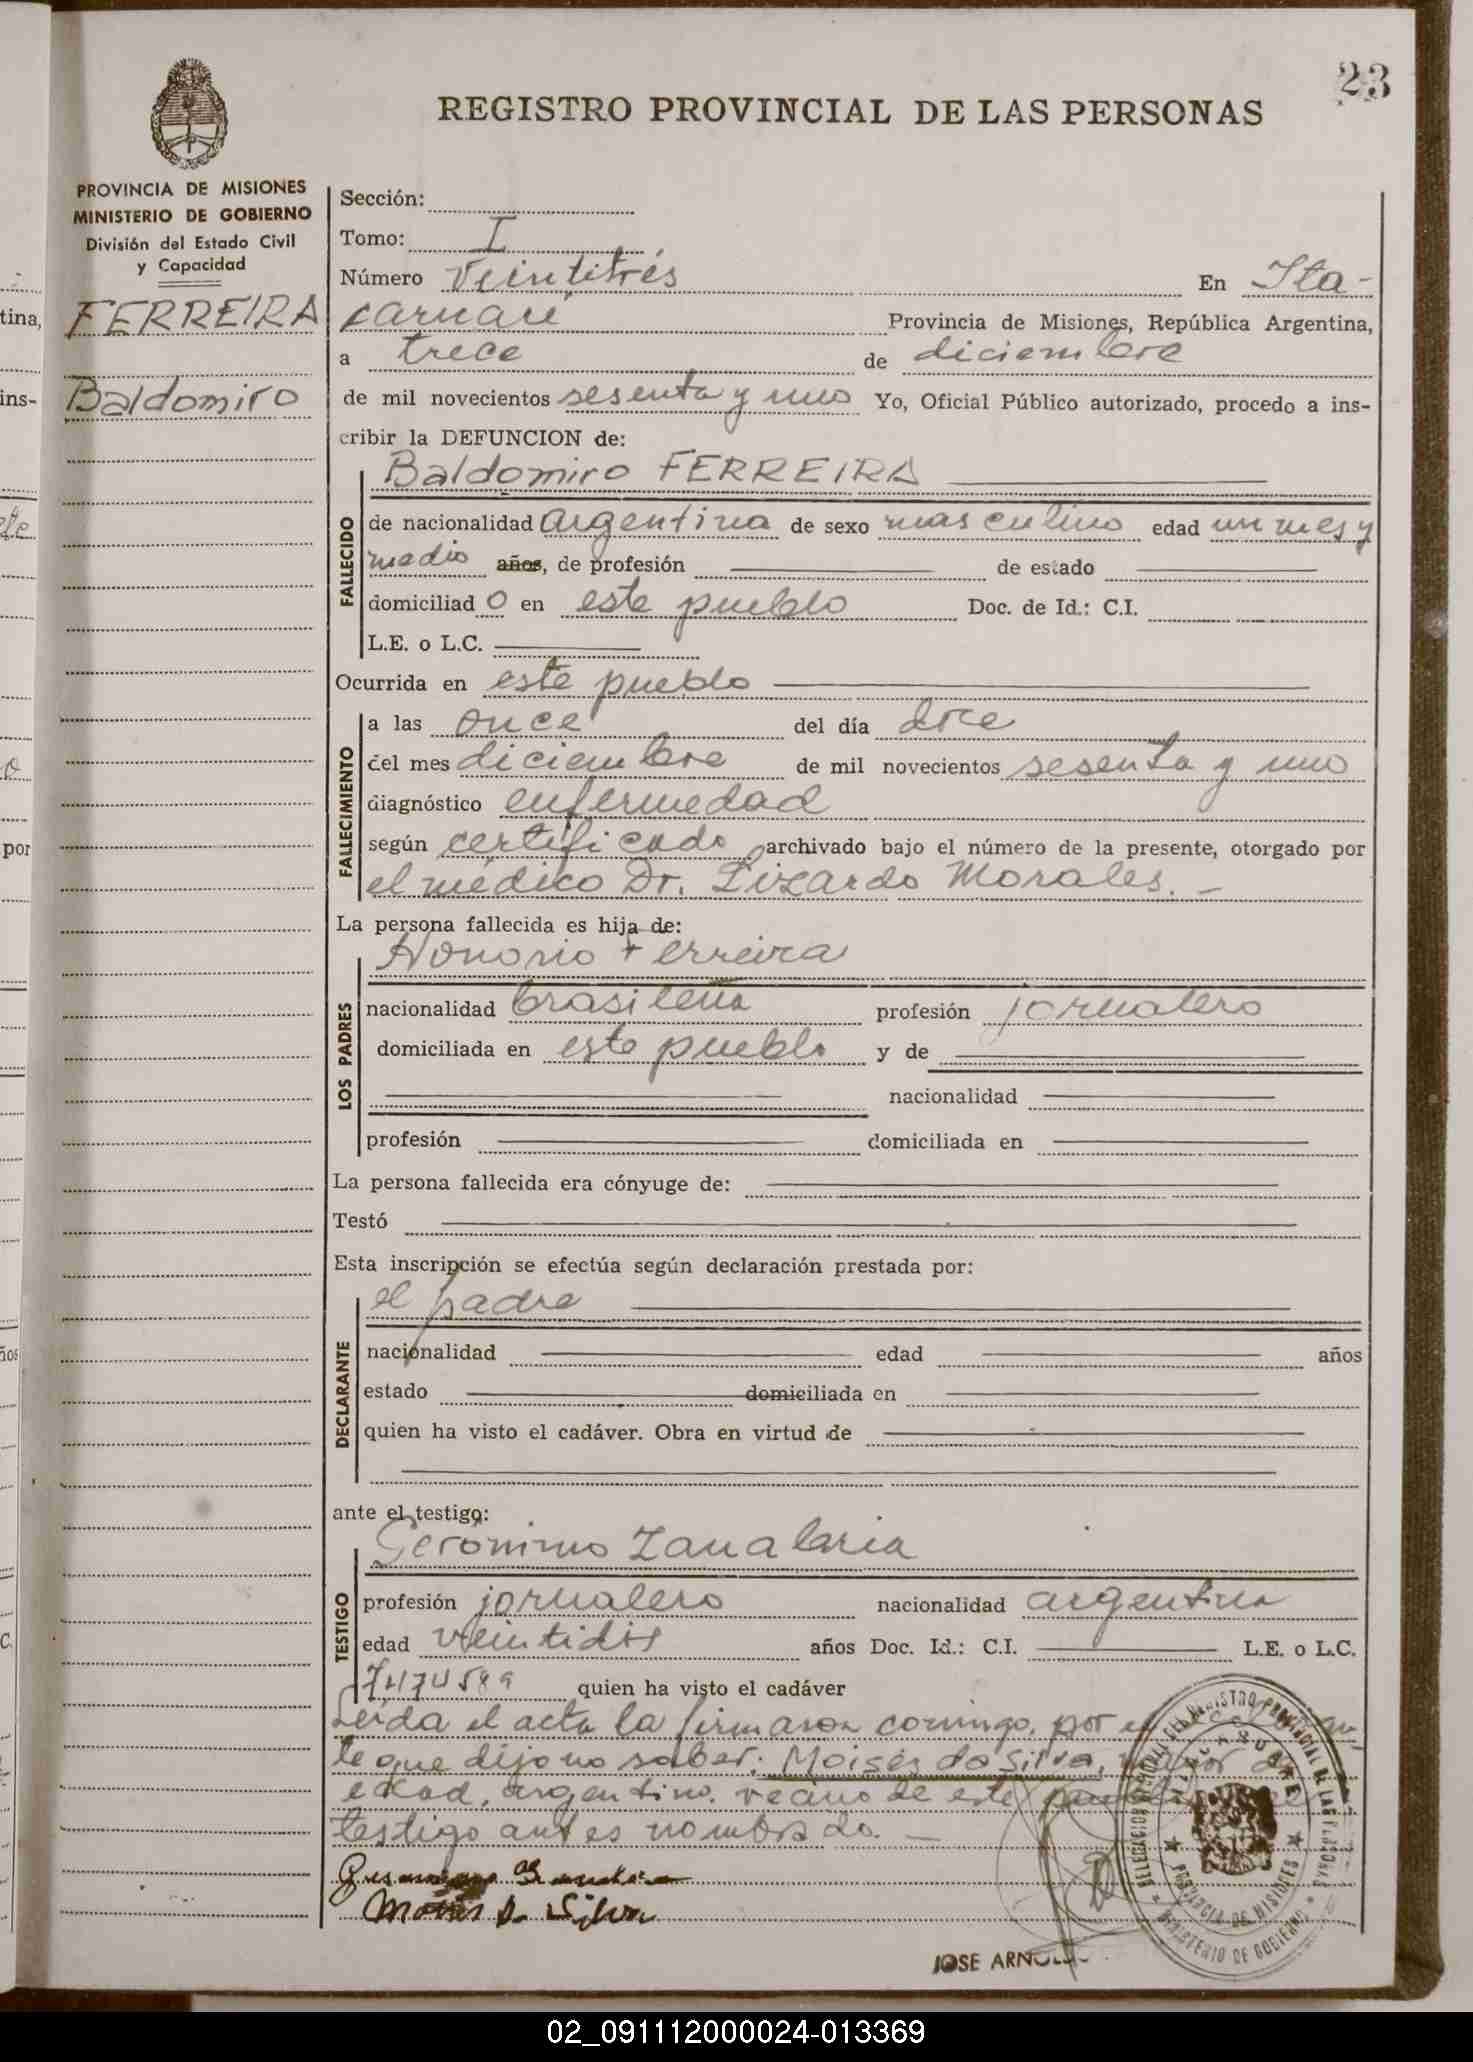 23
REGISTRO PROVINCIAL DE LAS PERSONAS
PROVINCIA DE MISIONES
MINISTERIO DE GOBIERNO
División del Estado Civil
y Capacidad
FERREIRA
Baldomiro
Sección:
Tomo: I
Número Veintitrés En Ita-
caruaré Provincia de Misiones, República Argentina,
a trece de diciembre
de mil novecientos sesenta y uno Yo, Oficial Público autorizado, procedo a ins-
cribir la DEFUNCION de:
Baldomiro FERREIRA
FALLECIDO
de nacionalidad argentina de sexo masculino edad un mes y
medio años, de profesión de estado
domiciliad o en este pueblo Doc. de Id.: C.I.
L.E. o L.C.
Ocurrida en este pueblo
FALLECIMIENTO
a las once del día doce
del mes diciembre de mil novecientos sesenta y uno
diagnóstico enfermedad
según certificado archivado bajo el número de la presente, otorgado por
el médico Dr. Lizardo Morales. -
La persona fallecida es hija de:
Honorio Ferreira
LOS PADRES
nacionalidad brasileña profesión jornalero
domiciliada en este pueblo y de
nacionalidad
profesión domiciliada en
La persona fallecida era cónyuge de:
Testó
Esta inscripción se efectúa según declaración prestada por:
el padre
DECLARANTE
nacionalidad edad años
estado domiciliada en
quien ha visto el cadáver. Obra en virtud de
ante el testigo:
Gerónimo Zanabria
TESTIGO
profesión jornalero nacionalidad argentina
edad veintidós años Doc. Id.: C.I. L.E. o L.C.
7474589 quien ha visto el cadáver
Leída el acta la firmaron conmigo, por el
te que dijo no saber: Moisés da Silva, mayor de
edad, argentino, vecino de este pueblo
testigo antes nombrado. -
Moises D. Silva
JOSE ARNOLD
PROVINCIA DE MISIONES
MINISTERIO DE GOBIERNO
02_091112000024-013369